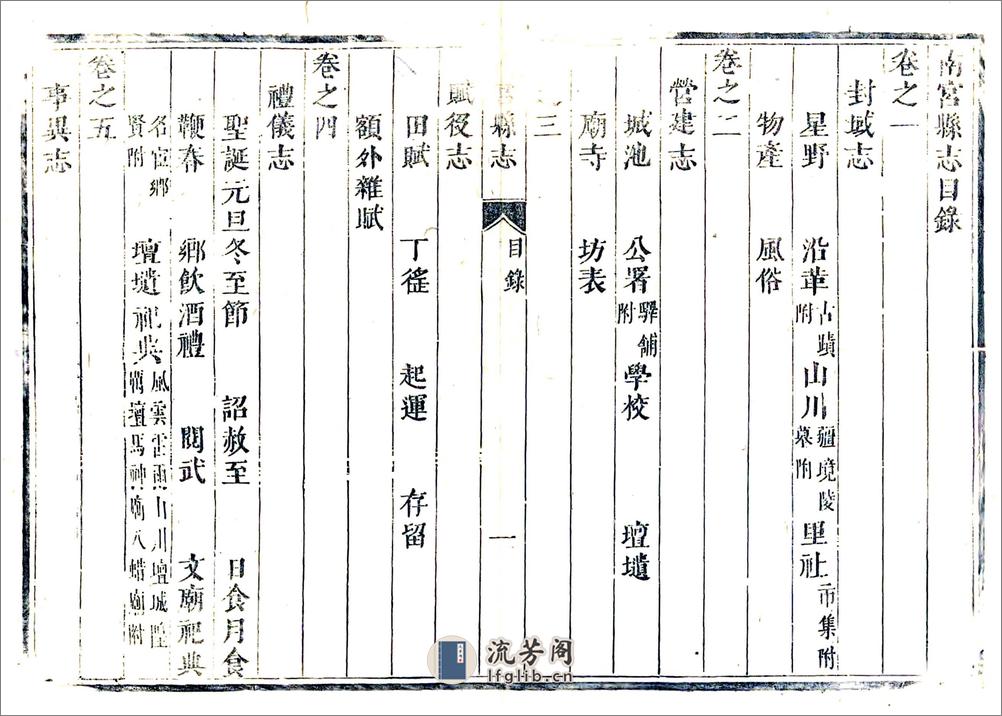 南宮縣志目錄
卷之一
封域志
星野 沿革古蹟附 山川疆境陵墓附 里社市集附
物產 風俗
卷之二
營建志
城池 公署驛舖附 學校 壇壝
廟寺 坊表
三
縣志 目錄 一
賦役志
田賦 丁徭 起運 存留
額外雜賦
卷之四
禮儀志
聖誕元旦冬至節 詔赦至 日食月食
鞭春 鄉飲酒禮 閱武 文廟祀典
名宦鄉賢附 壇壝祀典風雲雷雨山川壇城隍厲壇馬神廟八蜡廟附
卷之五
事異志
流芳阁
lfglib.cn